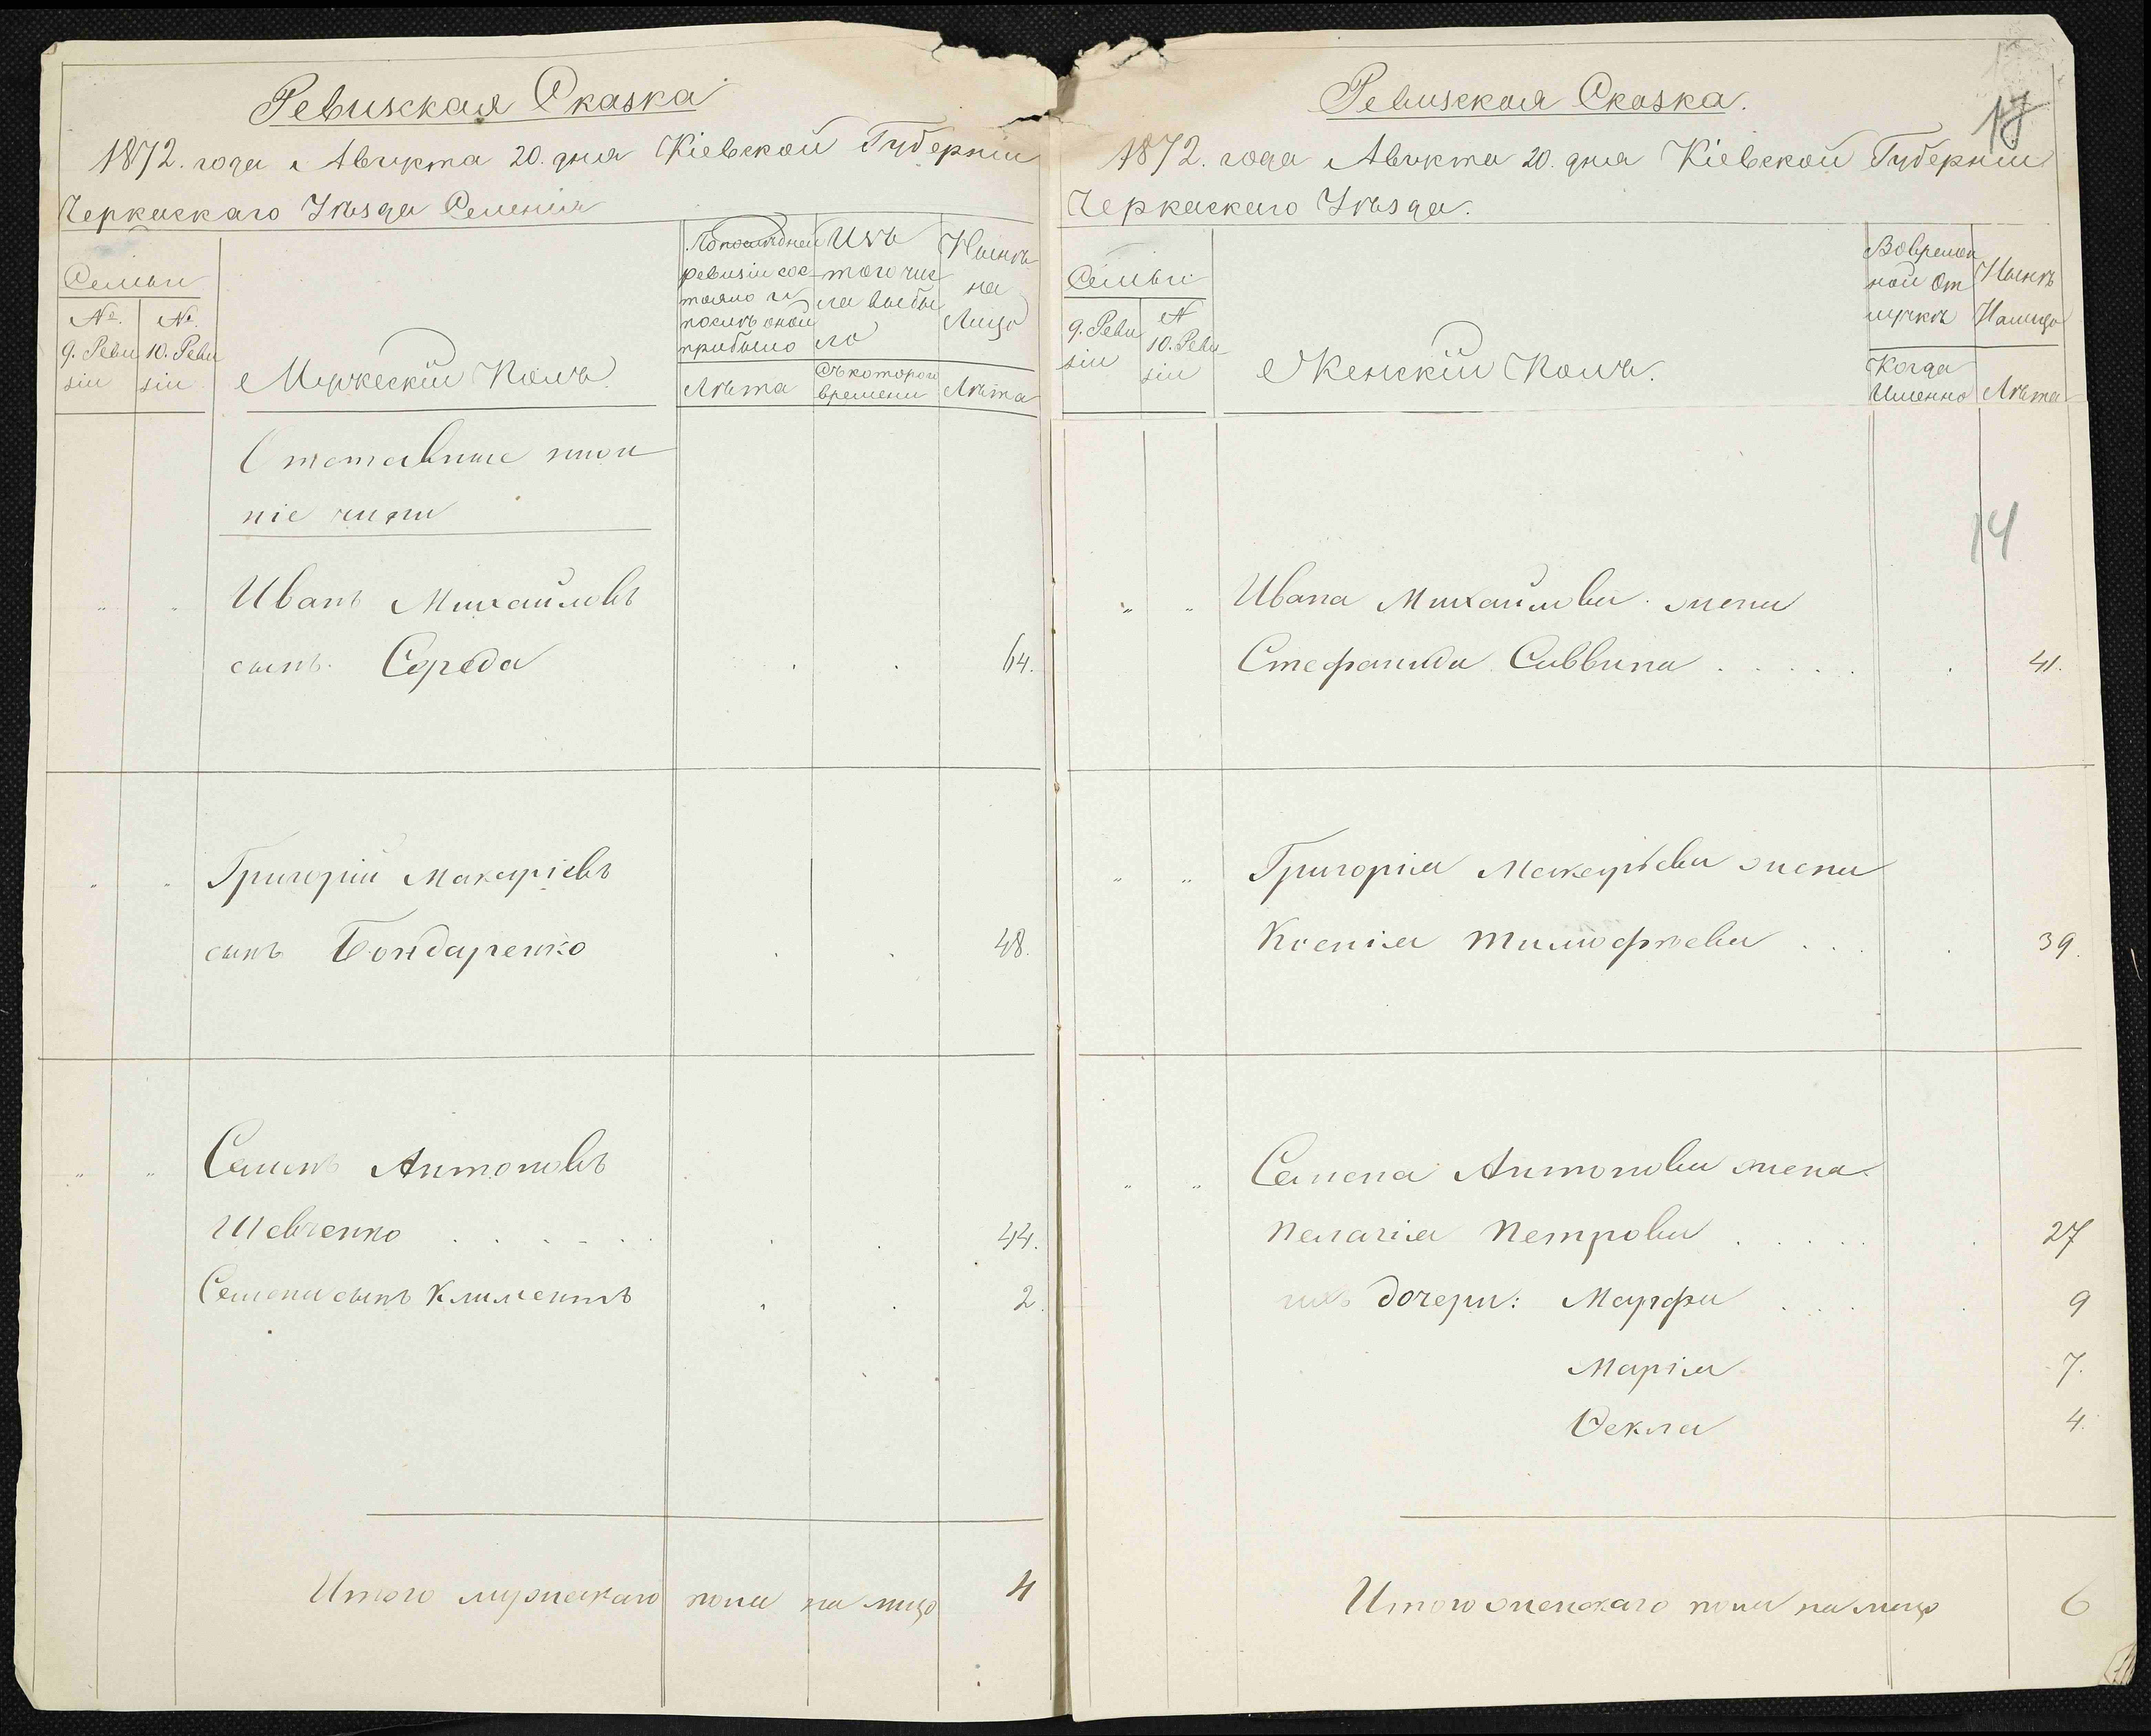 Ревизская Сказка
1872. года Августа 20. дня Кіевской Губерніи
Черкаскаго Уѣзда Селенія
Семьи
№. 9. Реви
зіи
№. 10. Реви
зіи
Мужескій Полъ.
По последней
ревизіи сос
тояло и
послѣ оной
прибыло
Лѣта
Изъ
того чис
ла выбы
ло
Съ котораго
времени
Нынѣ
на
Лицо
Лѣта
Отставные ниж
ніе чины
" " Иванъ Михайловъ
сынъ. Середа . . 64.
" " Григорій Макаріевъ
сынъ Бондаренко . . 48.
" " Семенъ Антоновъ
Шевченко . . 44.
Семена сынъ Климентъ . . 2.
Итого мужескаго пола на лицо 4
Ревизская Сказка.
17
1872. года Августа 20. дня Кіевской Губерніи
Черкаскаго Уѣзда.
Семьи
9. Реви
зіи
№
10. Реви
зіи
Женскій Полъ.
Вовремен
ной От
лучкѣ
Когда
Именно
Нынѣ
Налицо
Лѣта
14
" " Ивана Михайлова жена
Стефанида Саввина . . . . . . 41.
" " Григорія Макарьева жена
Ксенія Тимофѣева . . . . 39.
" " Семена Антонова жена
Пелагія Петрова . . . . . 27
ихъ дочери: Марфа . . . 9
Марія 7.
Ѳекла 4.
Итого женскаго пола на лицо 6